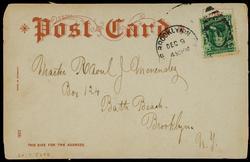 Post Card
BROOKLYN
DEC 9
Master Raoul J
Box 124
Bath Beach.
Brooklyn
N.Y.
THIS SIDE FOR THE ADDRESS.